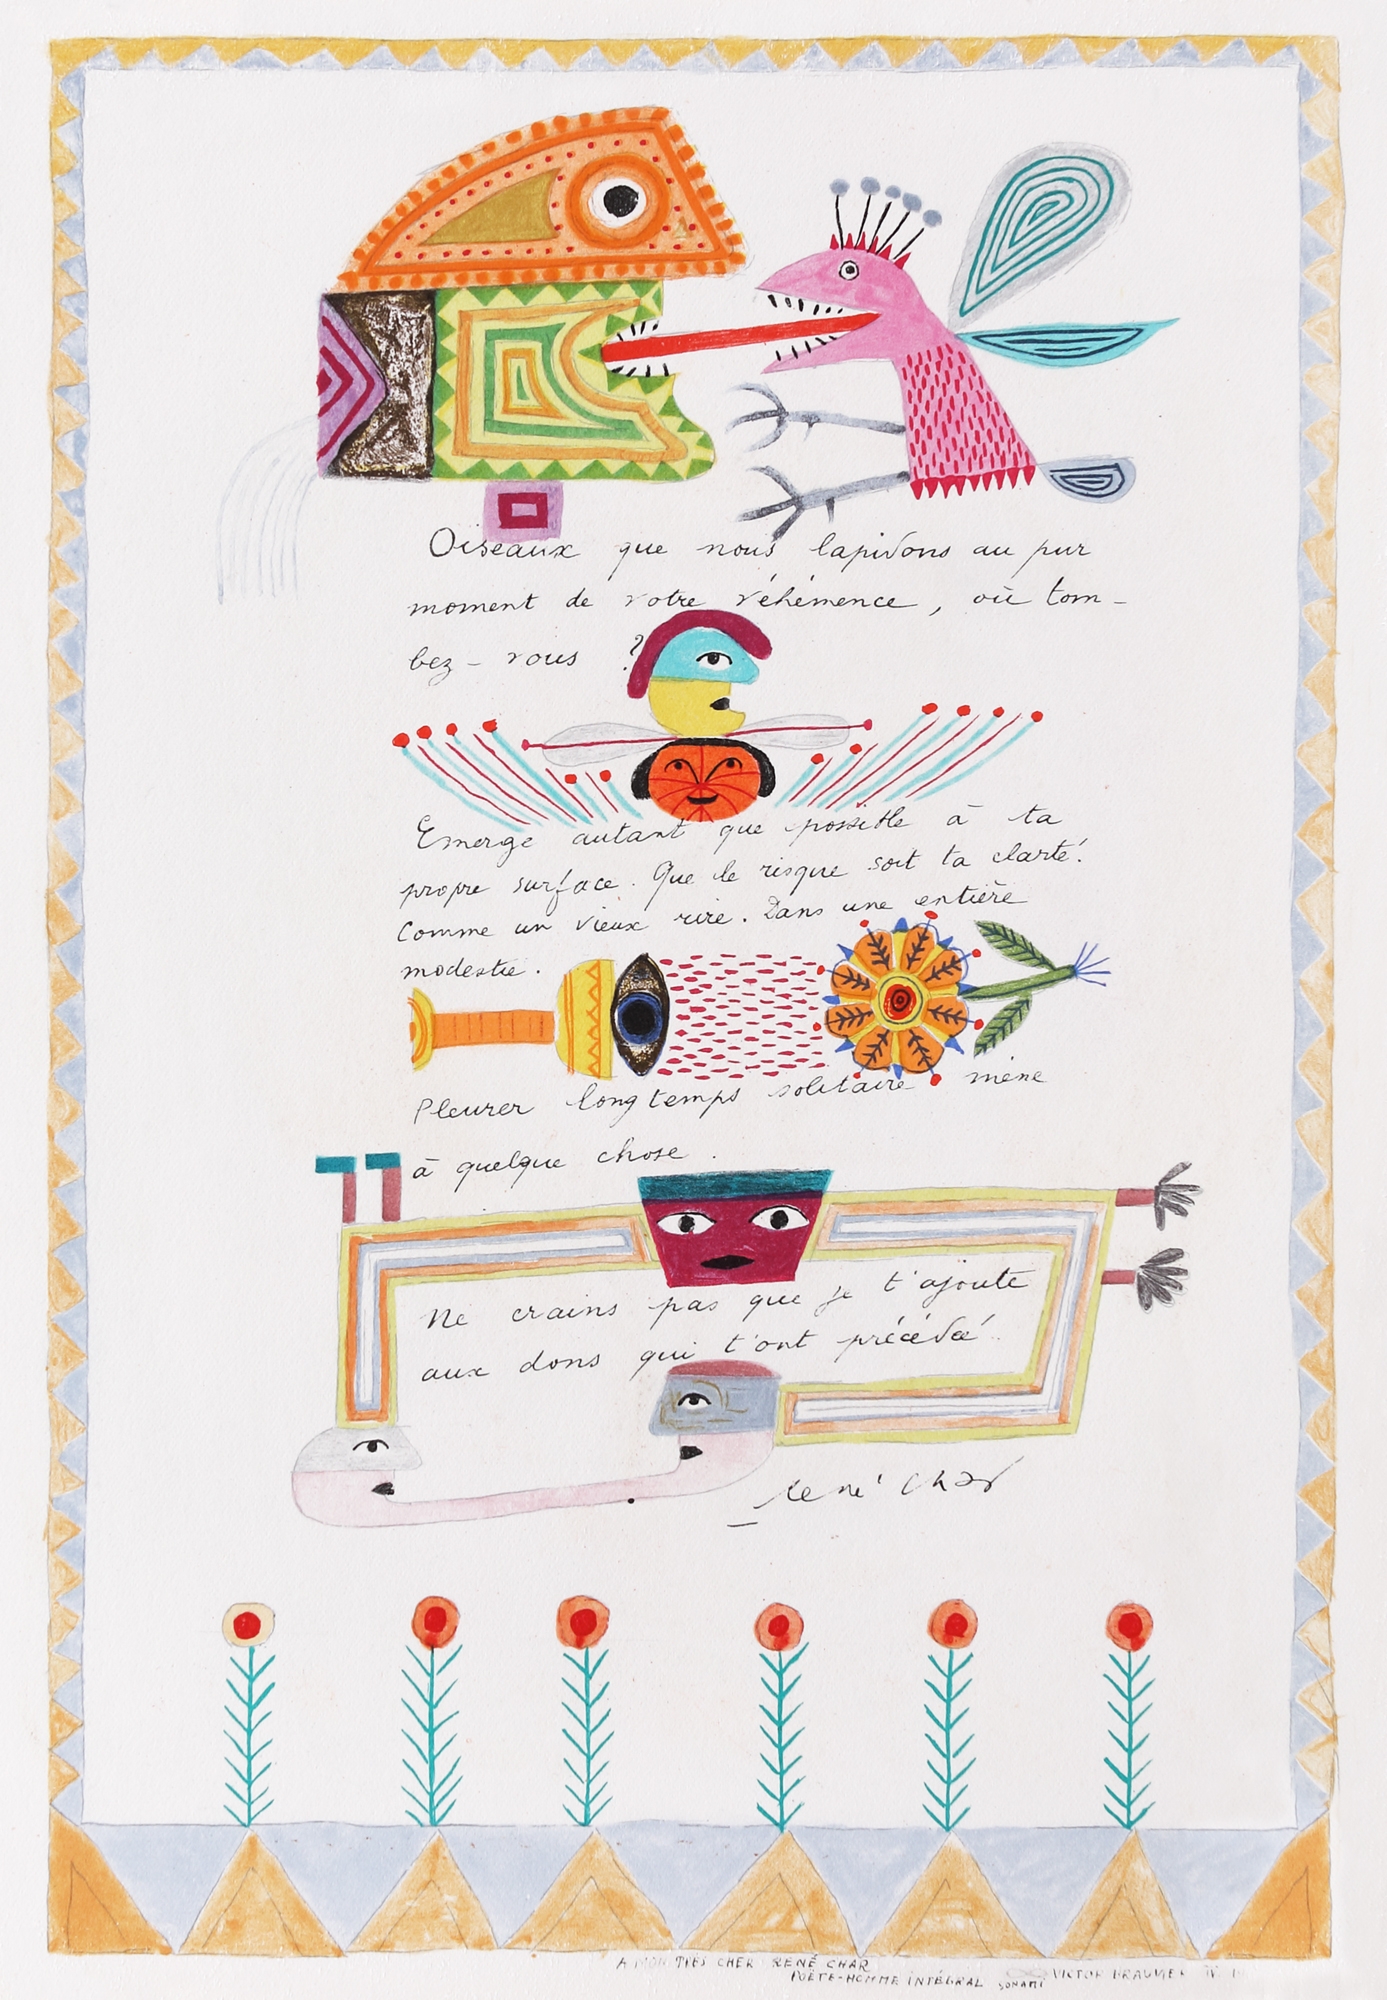 Oiseaux que nous lapidons au pur
moment de votre véhémence, où tom-
bez-vous ?
Emerge autant que possible à ta
propre surface. Que le risque soit ta clarté.
Comme un vieux rire. Dans une entière
modestie.
Pleurer longtemps solitaire mène
à quelque chose.
Ne crains pas que je t'ajoute
aux dons qui t'ont précédé.
René Char
A MON TRÈS CHER RENÉ CHAR
POÈTE-HOMME INTÉGRAL SON AMI VICTOR BRAUNER